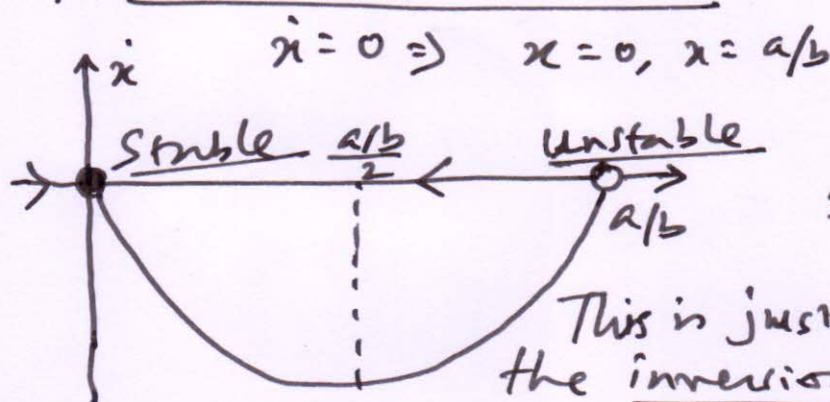 ẋ = 0 ⇒ x = 0, x = a/b
ẋ
Stable
a/b
2
Unstable
a/b
This is just
the inversio